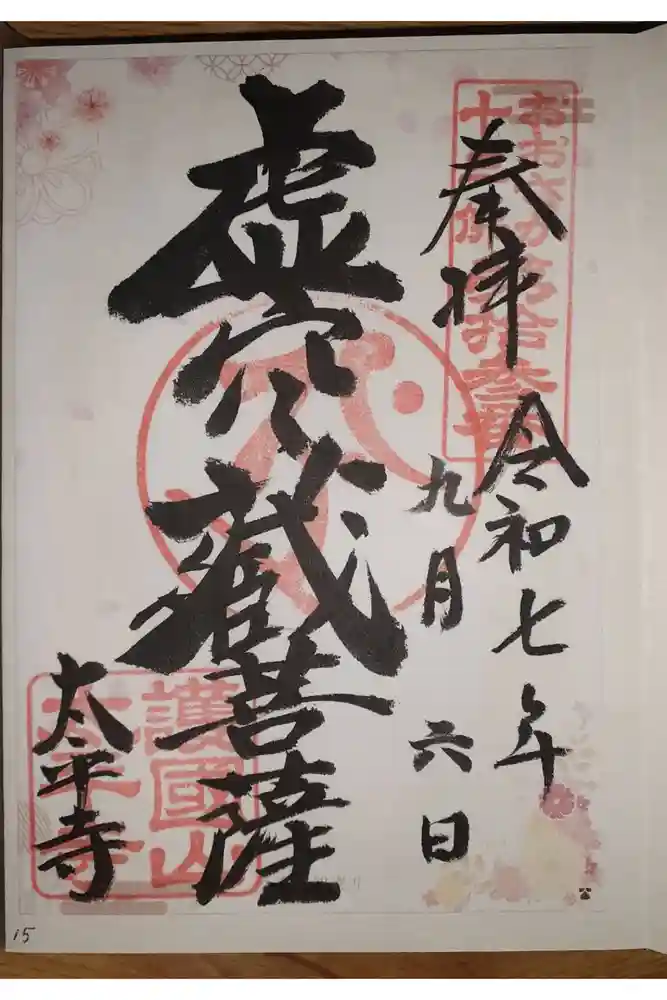 奉拝
令和七年
九月六日
虚空蔵菩薩
太平寺
護國山
太平寺
15